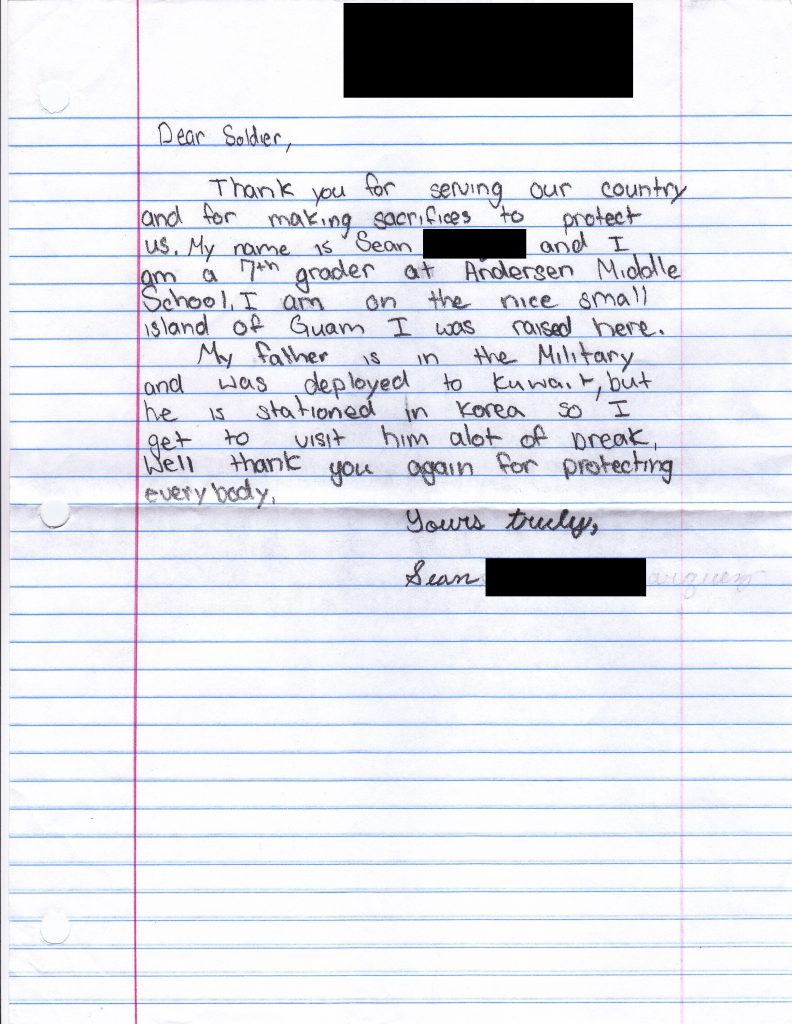 Dear Soldier,
Thank you for serving our country
and for making sacrifices to protect
us. My name is Sean and I
am a 7th grader at Andersen Middle
School. I am on the nice small
island of Guam I was raised here.
My father is in the Military
and was deployed to Kuwait, but
he is stationed in Korea so I
get to visit him alot of break.
Well thank you again for protecting
everybody.
Yours truly,
Sean